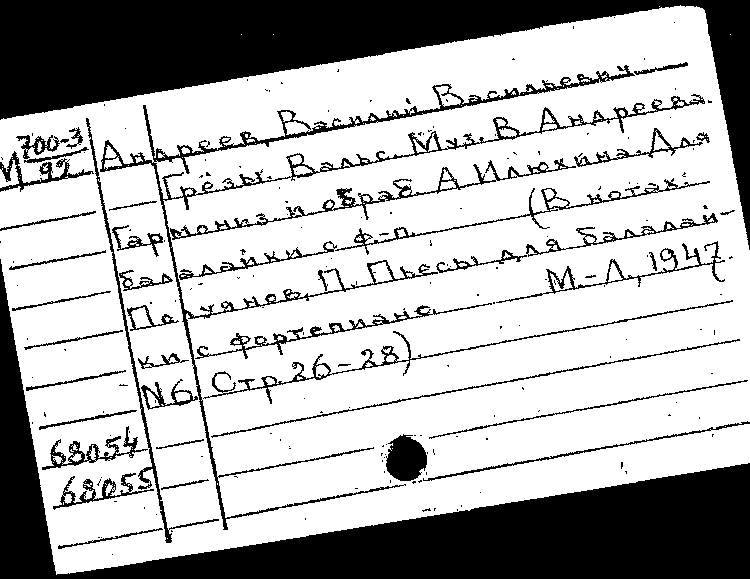 М 700-3/92
Андреев, Василий Васильевич
Грёзы. Вальс. Муз. В. Андреева.
Гармониз. и обраб. А Илюхина. Для
балалайки с ф.-п. (В нотах:
Полуянов, П. Пьесы для балалай-
ки с фортепиано. М.-Л., 1947
N6. Стр. 26-28).
68054
68055